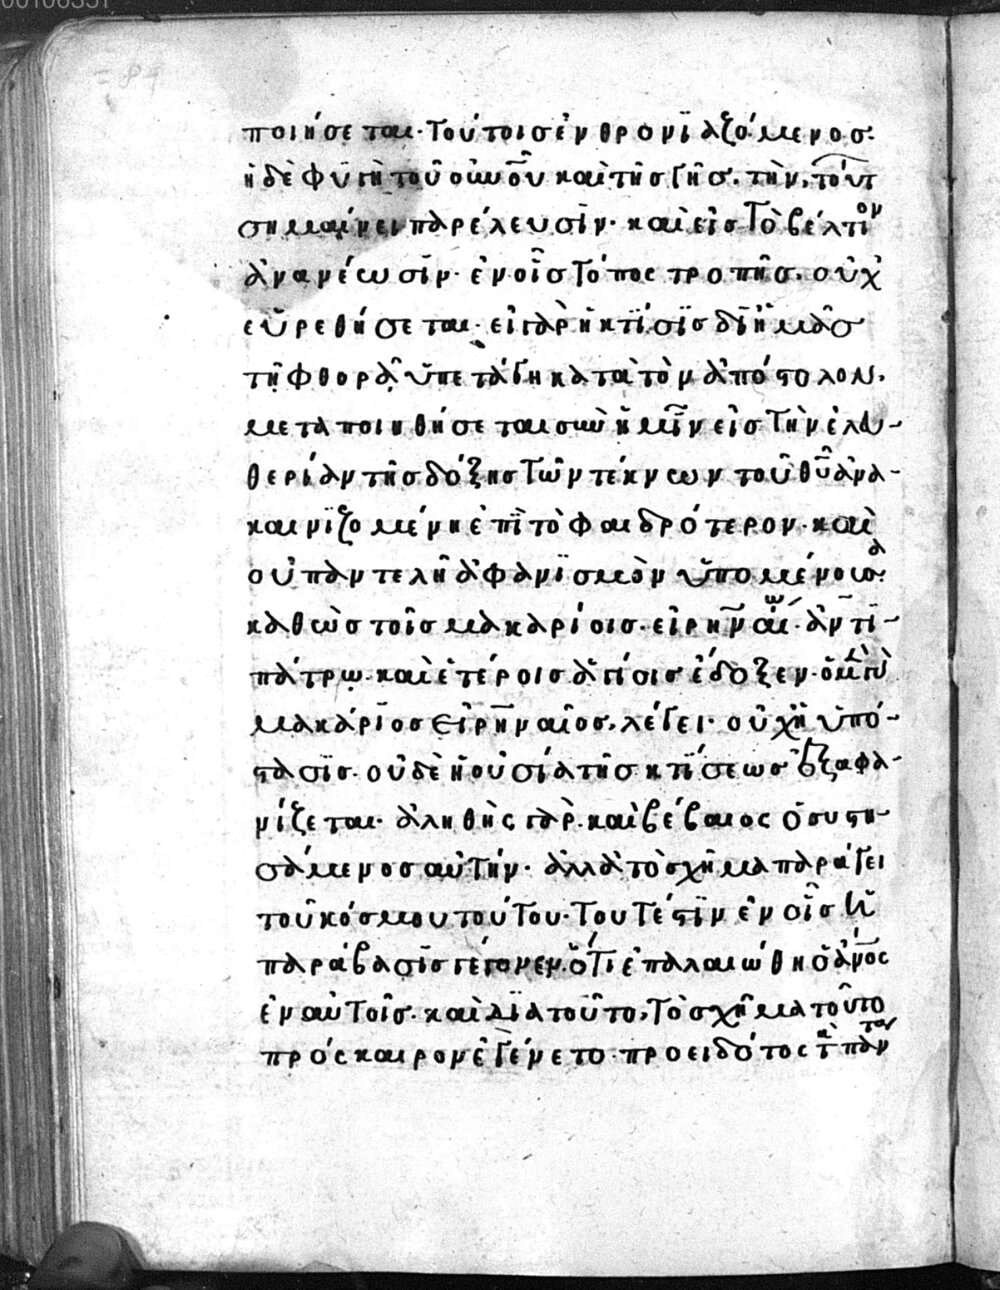 ποιήσεται· τούτοις ἐνθρονϊαζόμενος·
ἡ δὲ φυγὴ τοῦ οὐνοῦ καὶ τῆς γῆς· τὴν, τούτ
σημαίνει παρέλευσϊν· καὶ εἰς τὸ βέλτιον
ἀνανέωσϊν· ἐν οἷς τόπος τροπῆς· οὐχ
εὑρεθήσεται· εἰ γὰρ ἡ κτίσϊς δϊ ἡμᾶς
τῇ φθορᾷ ὑπετάγη κατὰ τὸν ἀπόστολον,
μεταποιηθήσεται σὺν ἡμῖν εἰς τὴν ἐλευ-
θερίαν τῆς δόξης τῶν τέκνων τοῦ θῦ ἀνα-
καινϊζομένη ἐπῒ τὸ φαιδρότερον· καὶ
οὐ παντελῆ ἀφανϊσμὸν ὑπομένουσα·
καθὼς τοῖς μακαρίοις· εἰρηναίω· ἀντϊ-
πάτρω· καὶ ἑτέροις ἁγίοις ἔδοξεν· ὁ μὲν
μακάριος εἰρηναῖος, λέγει· οὐχ ἡ ὑπό-
στασϊς· οὐδὲ ἡ οὐσία τῆς κτίσεως ἐξαφα-
νίζεται· ἀληθὴς γὰρ· καὶ βέβαιος ὁ συστη-
σάμενος αὐτήν· ἀλλὰ τὸ σχῆμα παράγει
τοῦ κόσμου τούτου· τουτέστϊν ἐν οἷς ἡ
παράβασϊς γέγονεν, ὅτι ἐπαλαιώθη ὁ ἄνος
ἐν αὐτοῖς· καὶ δϊὰ τοῦτο, τὸ σχῆμα τοῦτο
πρόσκαιρον ἐγένετο· προειδότος τὰ πάντα